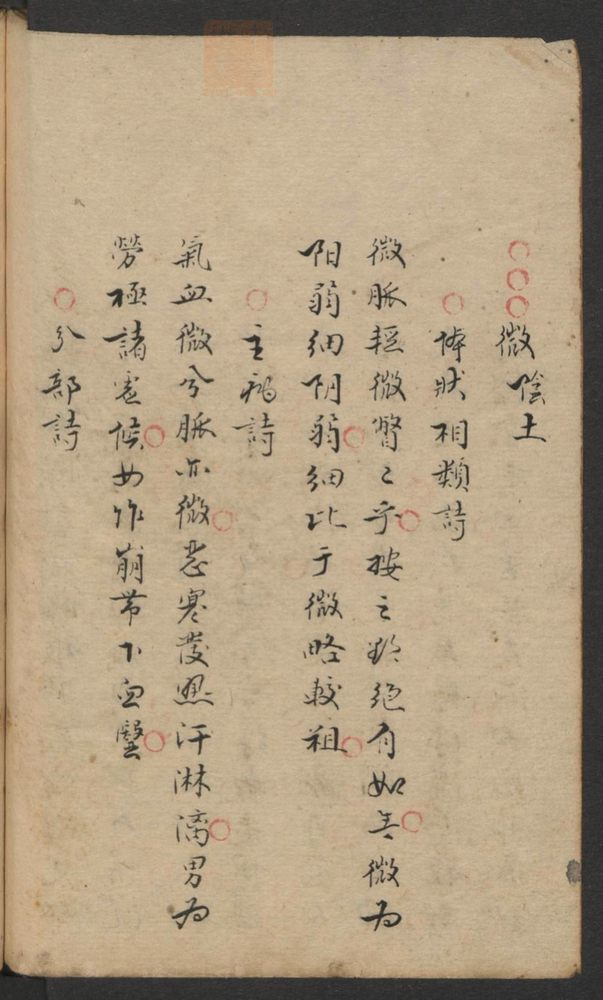 ○○○微陰土
○體狀相類詩
微脉輕微瞥〻乎○按之欲絕有如無○微为
阳弱细阴弱○细比于微略較粗○
○主病詩
氣血微兮脉亦微○恶寒發热汗淋漓○男为
勞極諸虚候○女作崩带下血醫○
○分部詩